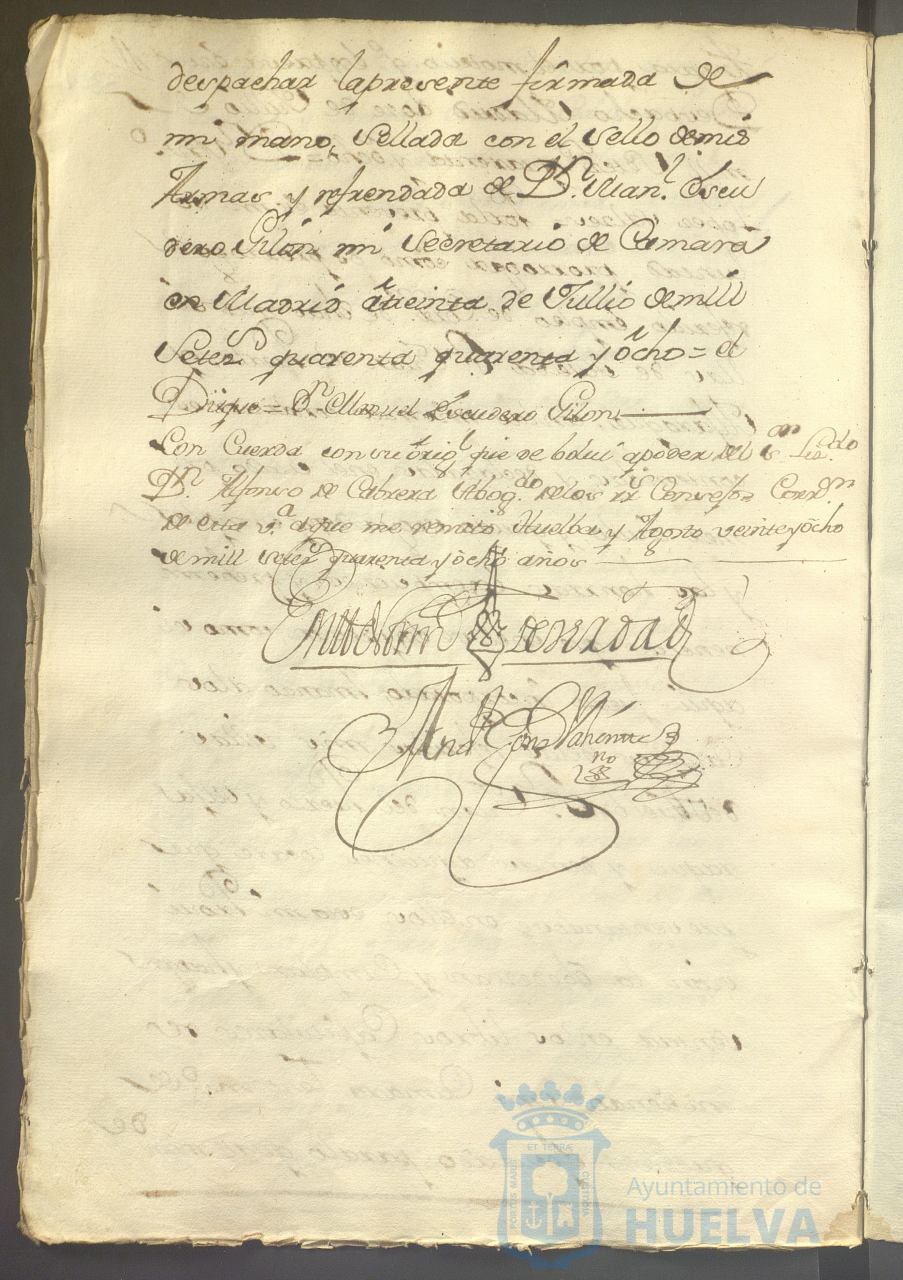 despachar lapresente firmada de
mi mano, Sellada con el Sello demis
Armas y refrendada de Dn. Manl. Escu
dero Gilon mi Secretario de Camara
en Madrid àtreinta de Jullio demill
Setezs. quarenta quarenta y ôcho = el
Duque = Dn. Manuel Escudero Gilon
Con Cuerda con su òrigl. que de bolui apoder del sor. Lizdo.
Dn. Alfonso de Cabrera Abogdo. delos Rs. Consejos Corrdr.
de esta va. aque me remito Huelba y Agosto veinte yôcho
de mill setezs. quarenta y ôcho años
En testim de verdad
ET TERRÆ
PORTUS MARIS
CUSTODIA
Ayuntamiento de
HUELVA